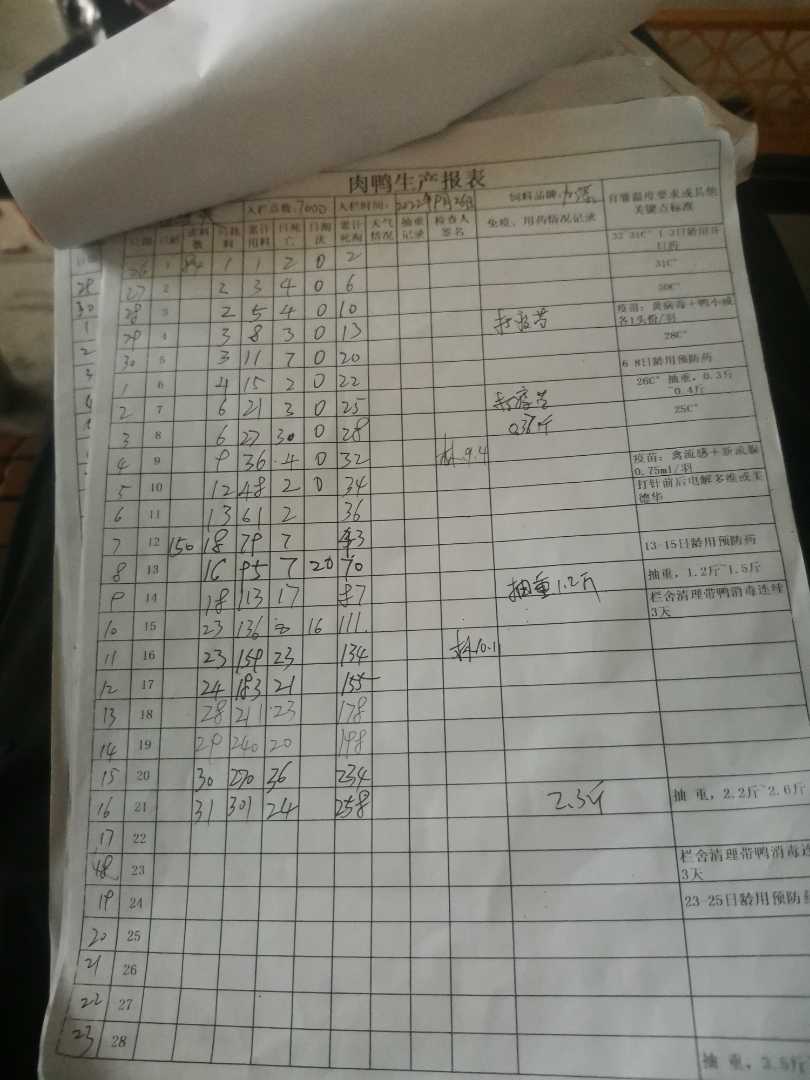 肉鸭生产报表
入栏总数:7000 入栏时间:2022年9月26日 饲料品牌: 育雏温度要求或其他关键点标准
日期 日龄 进料数 日耗料 累计用料 日死亡 日淘汰 累计死淘 天气情况 抽重记录 检查人签名 免疫、用药情况记录
26 1 84 1 1 2 0 2 32~31C° 1-3日龄用开口药
27 2 2 3 4 0 6 31C°
28 3 2 5 4 0 10 30C°
29 4 3 8 3 0 13 打疫苗 疫苗:黄病毒+鸭小减各1头份/羽
30 5 3 11 7 0 20 28C°
1 6 4 15 2 0 22 6-8日龄用预防药
2 7 6 21 3 0 25 打疫苗 26C° 抽重,0.3斤~0.4斤
3 8 6 27 3 0 0 28 0.36斤 25C°
4 9 9 36 4 0 32 料9.4
5 10 12 48 2 0 34 疫苗:禽流感+新流腺0.75ml/羽
6 11 13 61 2 36 打针前后电解多维或美德华
7 12 150 18 79 7 43
8 13 16 95 7 20 70 13-15日龄用预防药
9 14 18 113 17 87 抽重1.2斤 抽重,1.2斤~1.5斤
10 15 23 136 16 111 栏舍清理带鸭消毒连续3天
11 16 23 159 23 134 料10.11
12 17 24 183 21 155
13 18 28 211 23 178
14 19 29 240 20 198
15 20 30 270 36 234
16 21 31 301 24 258 2.3斤 抽重,2.2斤~2.6斤
17 22
18 23 栏舍清理带鸭消毒连3天
19 24 23-25日龄用预防
20 25
21 26
22 27
23 28 抽重,3.5斤